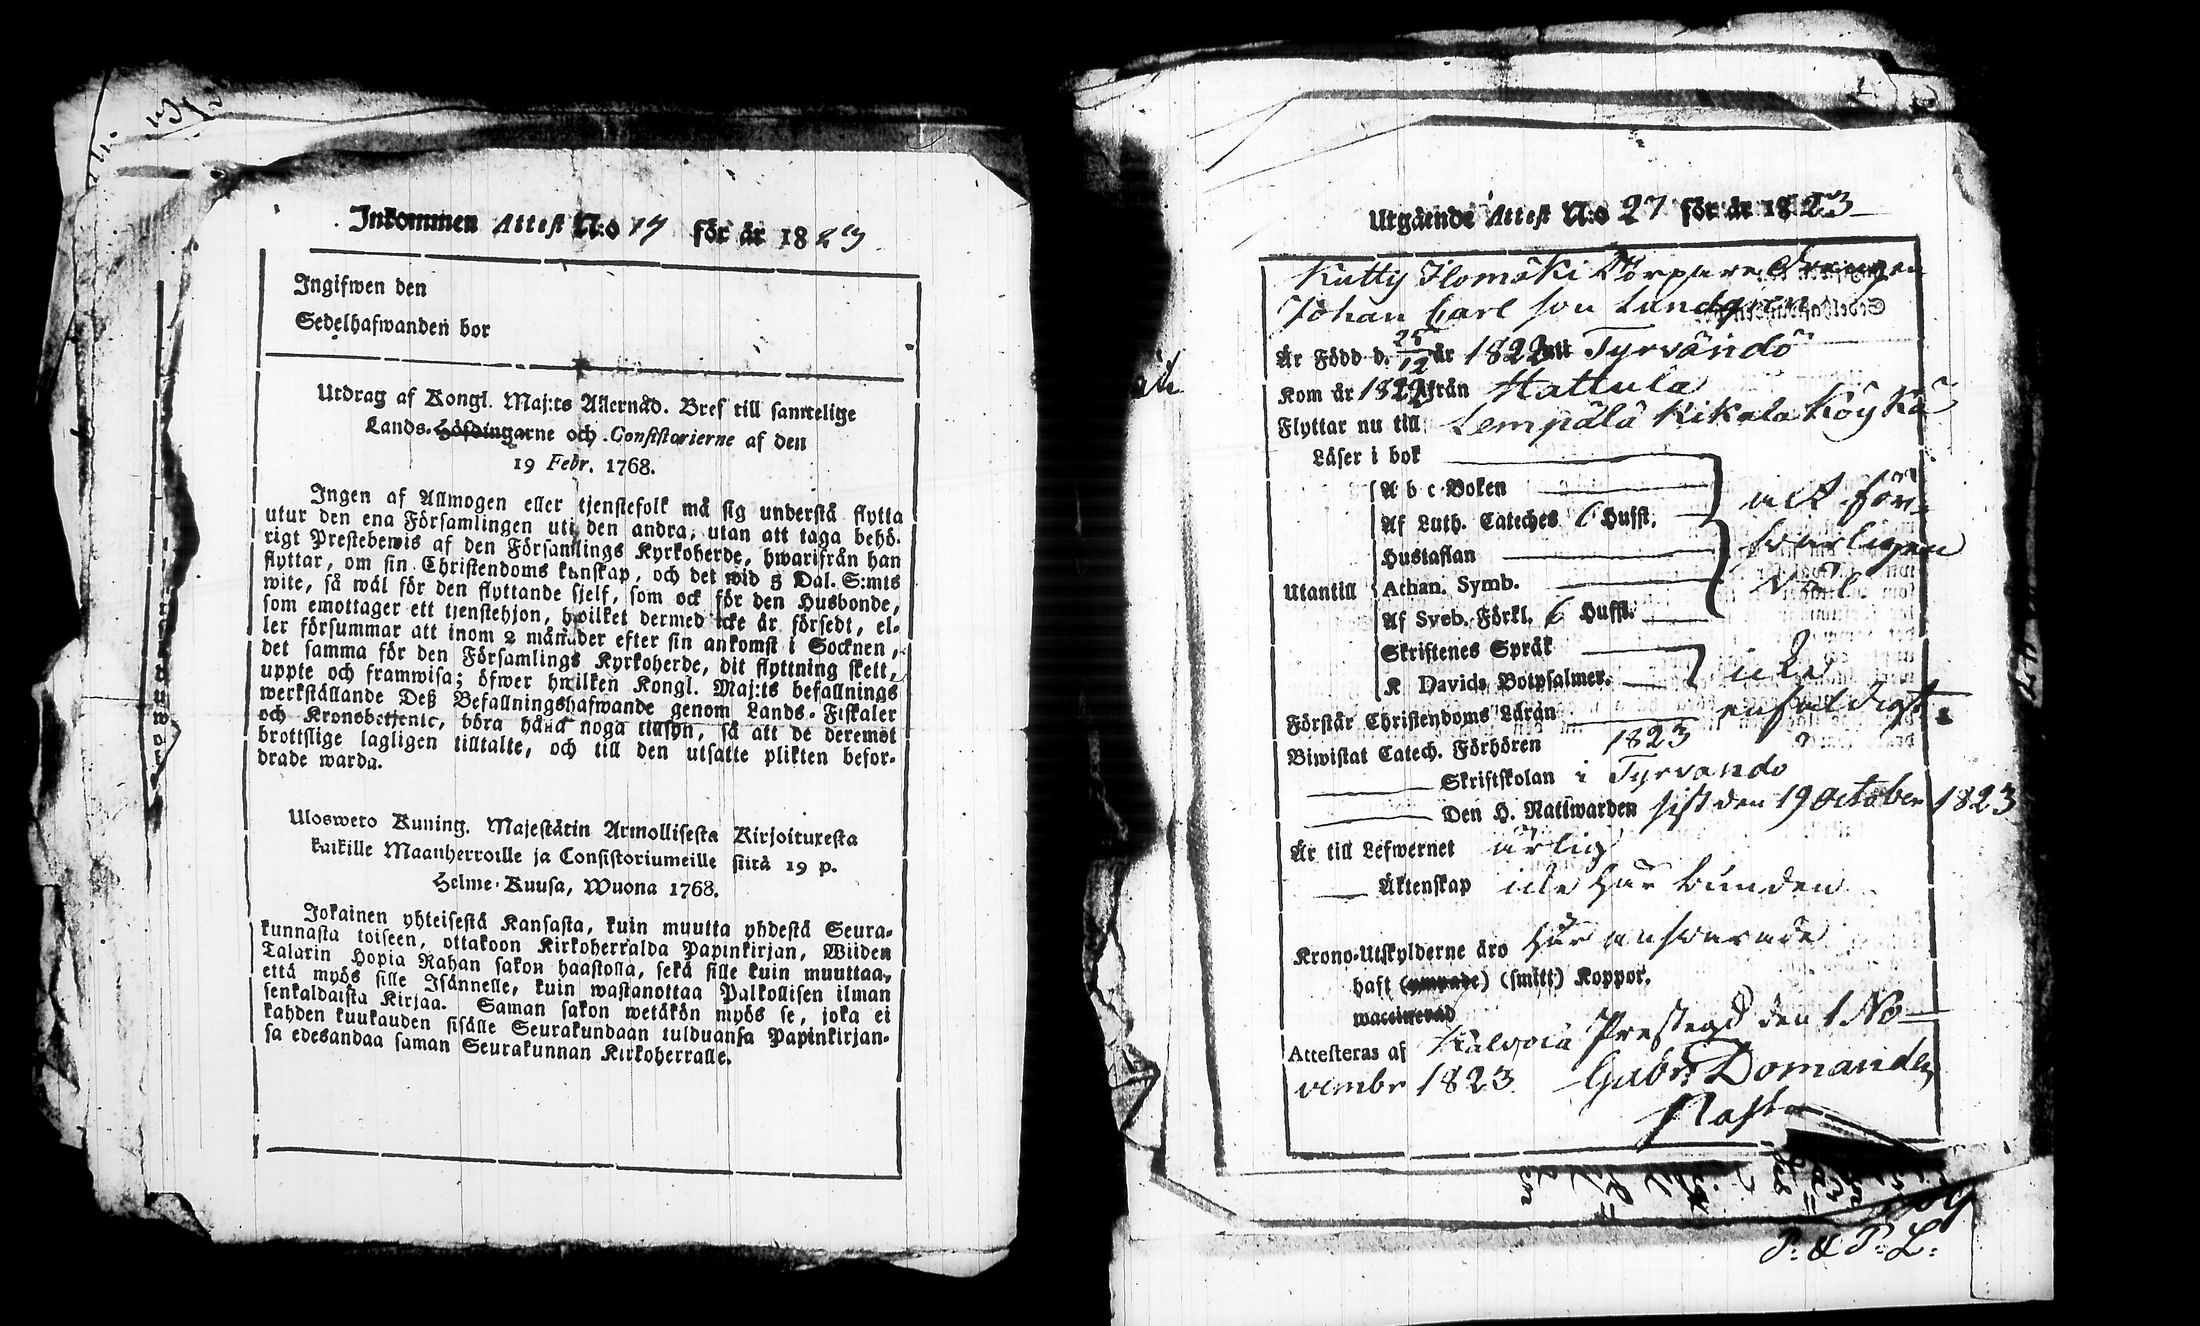 Inkommen Attest N:o 17 för år 1823
Ingifwen den
Sedelhafwanden bor
Utdrag af Kongl. Maj:ts Allernåd. Bref till samtelige
Lands-Höfdingarne och Consistorierne af den
19 Febr. 1768.
Ingen af Allmogen eller tjenstefolk må sig understå flytta
utur den ena Församlingen uti den andra, utan att taga behö-
rigt Prestebewis af den Församlings Kyrkoherde, hwarifrån han
flyttar, om sin Christendoms kunskap, och det wid 5 Dal. S:mts
wite, så wäl för den flyttande sjelf, som ock för den Husbonde,
som emottager ett tjenstehjon, hwilket dermed icke är försedt, el-
ler försummar att inom 2 månader efter sin ankomst i Socknen,
det samma för den Församlings Kyrkoherde, dit flyttning skett,
uppte och framwisa; öfwer hwilken Kongl. Maj:ts befallnings
werkställande Deß Befallningshafwande genom Lands-Fiskaler
och Kronobetjente, böra hafwa noga tillsyn, så att de deremot
brottslige lagligen tilltalte, och till den utsatte plikten befor-
drade warda.
Uloswero Kuning. Majestätin Armollisesta Kirjoituxesta
kaikille Maanherroille ja Consistoriumeille siitä 19 p.
Helme-Kuusa, Wuona 1768.
Jokainen yhteisestä Kansasta, kuin muutta yhdestä Seura-
kunnasta toiseen, ottakoon Kirkoherralda Papinkirjan, Wiiden
Talarin Hopia Rahan sakon haastolla, sekä sille kuin muuttaa,
että myös sille Isännelle, kuin wastanottaa Palkollisen ilman
senkaldaista Kirjaa. Saman sakon wetäkön myös se, joka ei
kahden kuukauden sisälle Seurakundaan tulduansa Papinkirjan-
sa edesandaa saman Seurakunnan Kirkoherralle.
Utgående Attest N:o 27 för år 1823
Johan Carl son
Är Född d. 25/12 år 1822 uti Tyrvändö
Kom år 1822 från Hattula
Flyttar nu till Lempälä Kikala Köykä
Läser i bok
A b c-Boken
Af Luth. Cateches 6 Hufst.
Hustaflan
Utantill Athan. Symb.
Af Sveb. Förkl. 6 Hufst.
Skriftenes Språk
K Davids Botpsalmer.
alt för-
svarligen
väl
icke
Förstår Christendoms Läran enfaldigt
Biwistat Catech. Förhören 1823
Skriftskolan i Tyrvändö
Den H. Nattwarden sist den 19 October 1823
Är till Lefwernet ärlig
Äktenskap icke här bunden
Krono-Utskylderne äro här ansvarade
haft (ympade) (smitt) Koppor.
waccinerad
Attesteras af Kalvola Prestegd den 1 No-
vembr 1823 Gabr. Domander
Past.
P: & P: L: